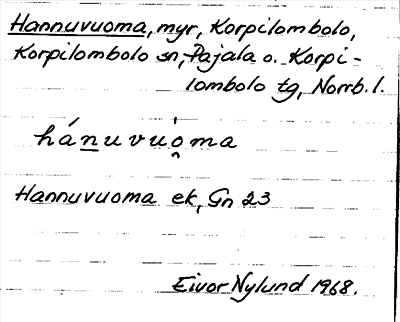 Hannuvuoma, myr, Korpilombolo,
Korpilombolo sn, Pajala o. Korpi-
lombolo tg, Norrb. l.
hánuvuo̯̍ma
Hannuvuoma ek, Gn 23
Eivor Nylund 1968.